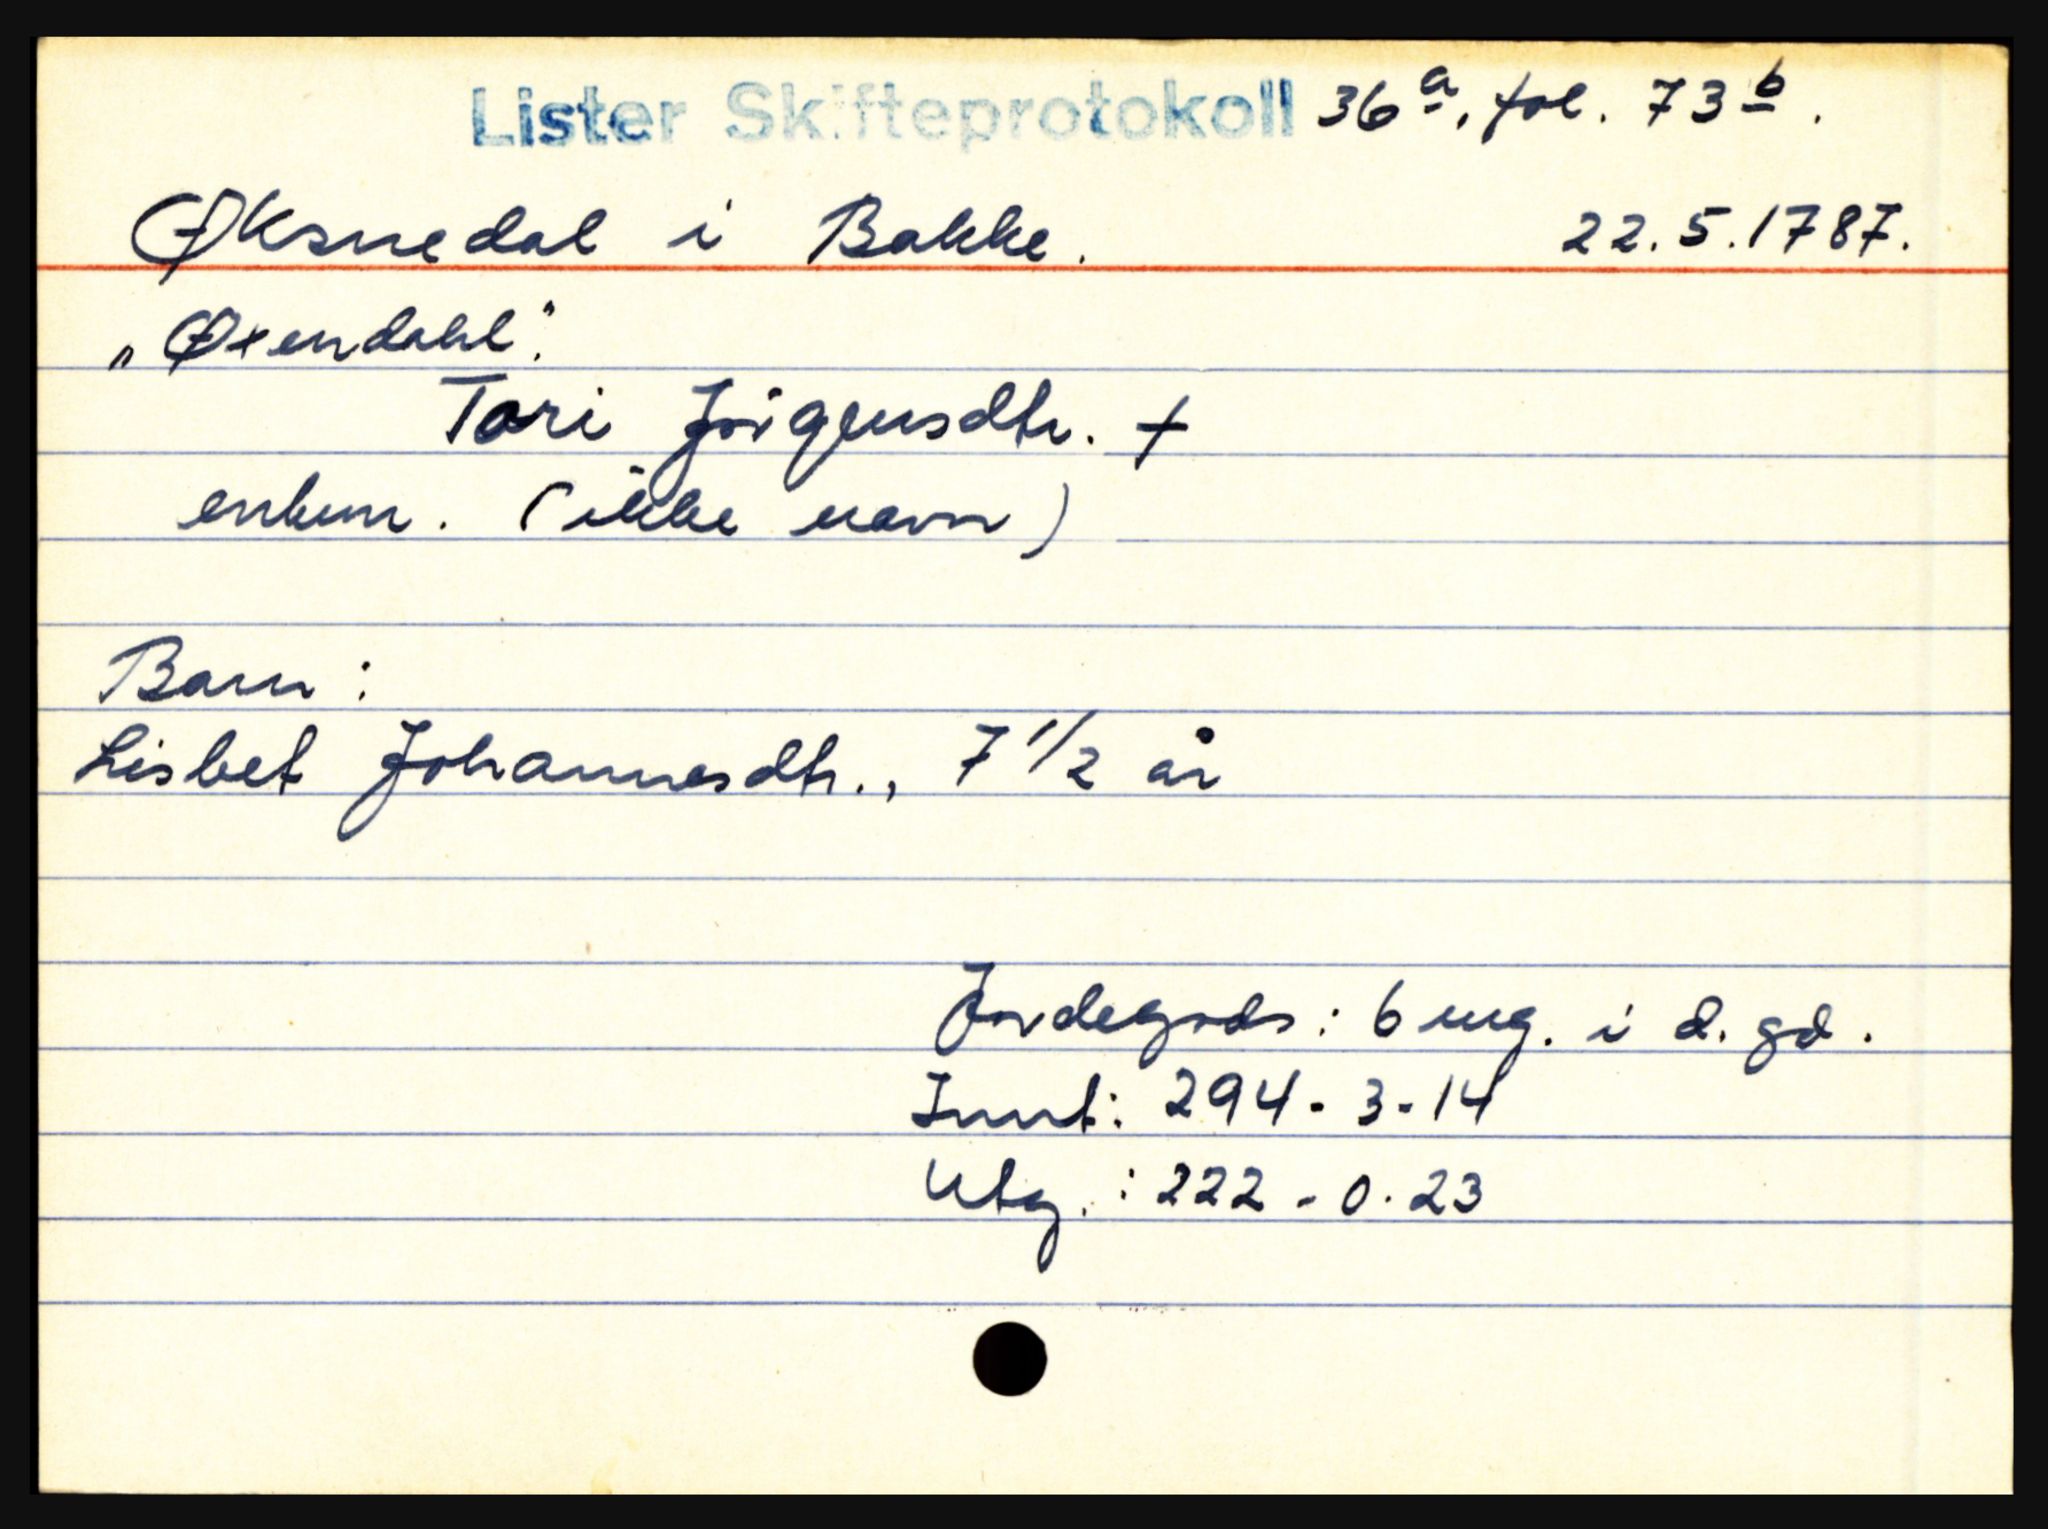 Lister Skifteprotokoll 36a, fol. 73b.
Øksnedal i Bakke. 22.5.1787.
"Øxendahl".
Tori Jørgensdtr. +
enkem. (ikke navn)
Barn:
Lisbet Johannesdtr., 7 1/2 år
Jordegods: 6 mg. i d. gd.
Innt: 294-3-14
Utg.: 222-0-23